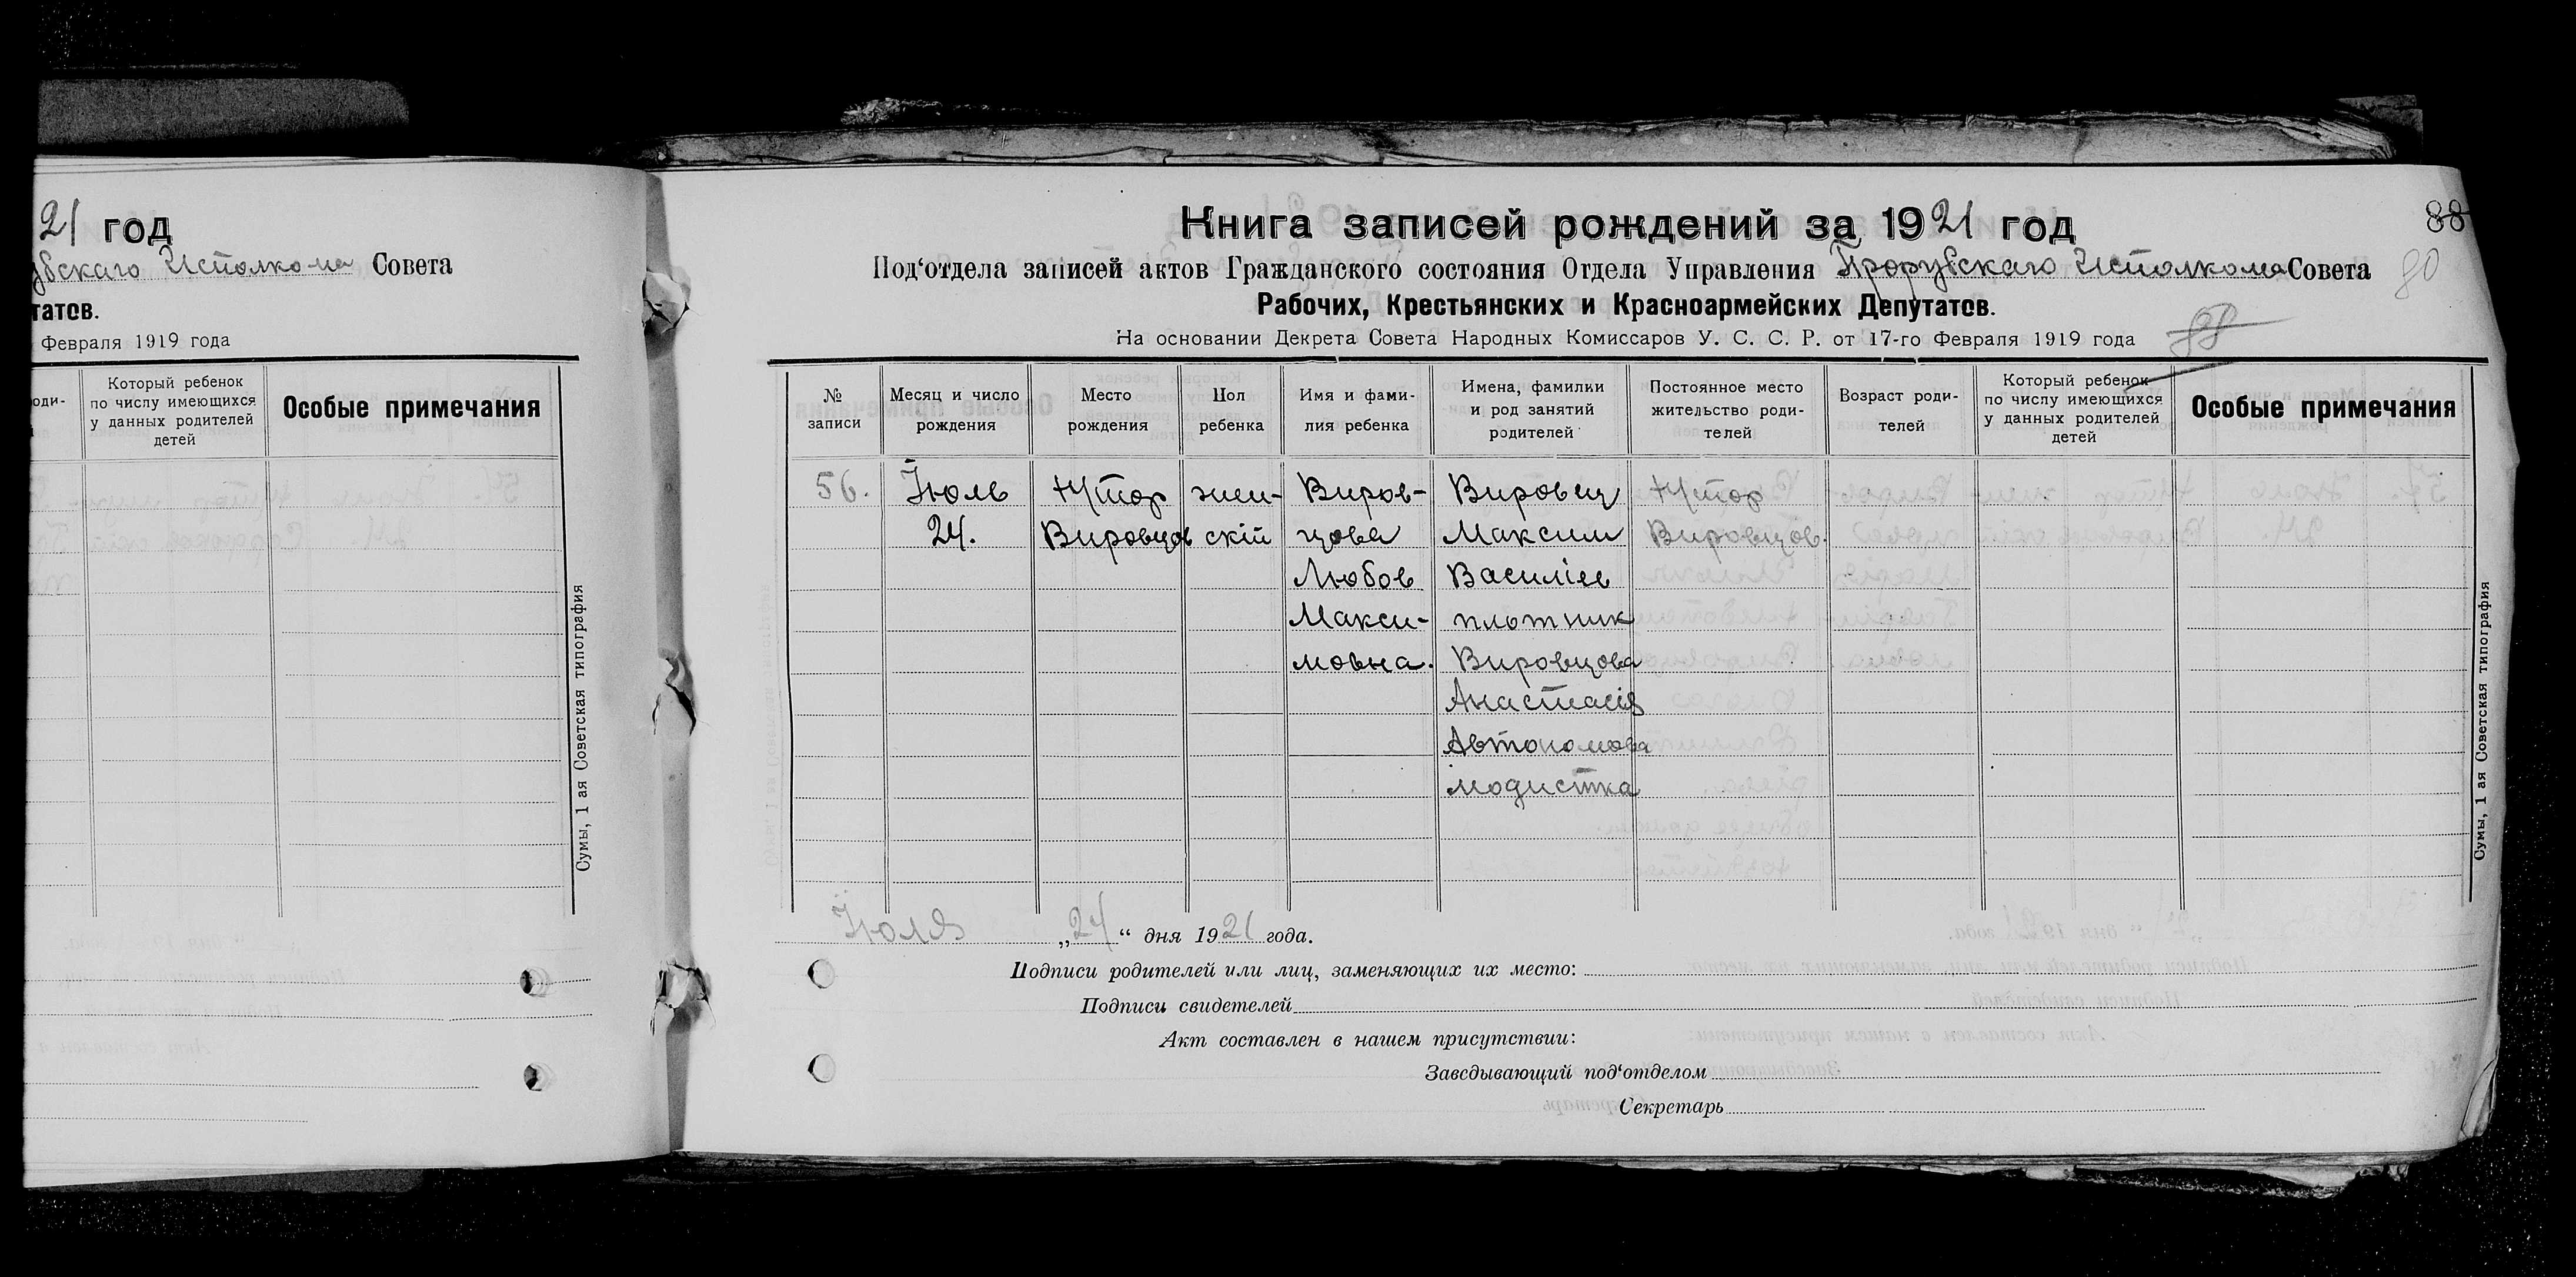 21 год
Исполкома Совета
татов.
Февраля 1919 года
Который ребенок
по числу имеющихся
у данных родителей
детей
Особые примечания
Сумы, 1 ая Советская типография
Книга записей рождений за 1921 год
88
Под‘отдела записей актов Гражданского состояния Отдела Управления Прорубскаго Исполкома Совета
80
Рабочих, Крестьянских и Красноармейских Депутатов.
На основании Декрета Совета Народных Комиссаров У. С. С. Р. от 17-го Февраля 1919 года
№
записи
Месяц и число
рождения
Место
рождения
Пол
ребенка
Имя и фами-
лия ребенка
Имена, фамилии
и род занятий
родителей
Постоянное место
жительство роди-
телей
Возраст роди-
телей
Который ребенок
по числу имеющихся
у данных родителей
детей
Особые примечания
56. Іюль Хутор жен- Виров- Вировец Хутор
24. Вировцов скій цова Максим Вировцов.
Любов Василіев
Макси- плотник
мовна. Вировцова
Анастасія
Автономова
модистка
Сумы, 1 ая Советская типография
Іюля „24“ дня 1921 года.
Подписи родителей или лиц, заменяющих их место:
Подписи свидетелей
Акт составлен в нашем присутствии:
Заведывающий под‘отделом
Секретарь